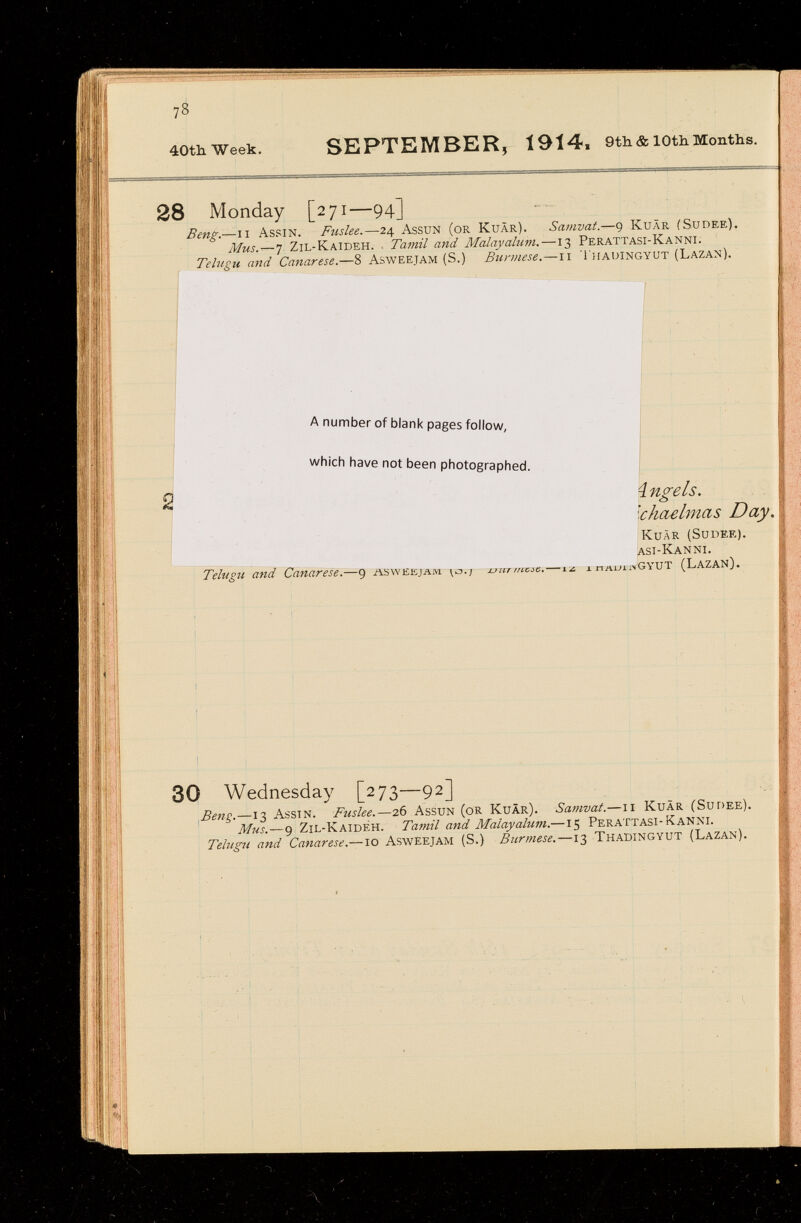 78
40th Week. SEPTEMBER, 1914. 9th & 10th Months.
28 Monday [271—94]
Beng.—11 Assin. Fuslee.—24 Assun (or Kuār). Samvat.—9 Kuār (Sudee).
Mus.—7 Zil-Kaideh. Tamil and Malayalum.—13 Perattasi-Kanni.
Telugu and Canarese.—8 Asweejam (S.) Burmese.—11 Thadingyut (Lazan).
A number of blank pages follow,
which have not been photographed.
2 Angels.
ichaelmas Day.
Kuār (Sudee).
asi-Kanni.
Telugu and Canarese.—9 Asweejam (S.) Burmese.—12 Thadingyut (Lazan).
30 Wednesday [273—92]
Beng.—13 Assin. Fuslee.—26 Assun (or Kuār). Samvat.—11 Kuār (Sudee).
Mus.—9 Zil-Kaideh. Tamil and Malayalum.—15 Perattasi-Kanni.
Telugu and Canarese.—10 Asweejam (S.) Burmese.—13 Thadingyut (Lazan).